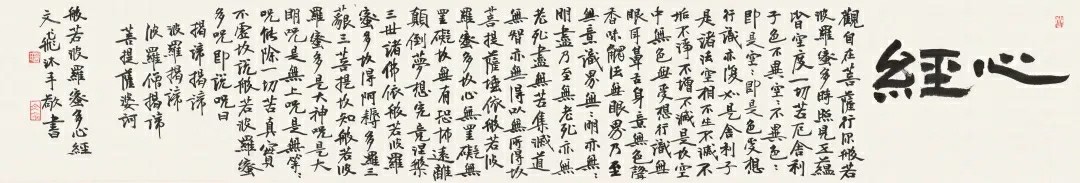 心經
觀自在菩薩行深般若
波羅蜜多時照見五蘊
皆空度一切苦厄舍利
子色不異空々不異色々
即是空々即是色受想
行識亦復如是舍利子
是諸法空相不生不滅不
垢不淨不增不減是故空
中無色無受想行識無
眼耳鼻舌身意無色聲
香味觸法無眼界乃至
無意識界無々明亦無々
明盡乃至無老死亦無
老死盡無苦集滅道
無智亦無得以無所得故
菩提薩埵依般若波
羅蜜多故心無罣礙無
罣礙故無有恐怖遠離
顛倒夢想究竟涅槃
三世諸佛依般若波羅
蜜多故得阿耨多羅三
藐三菩提故知般若波
羅蜜多是大神呪是大
明呪是無上呪是無等々
呪能除一切苦真實
不虛故說般若波羅蜜
多呪即說呪曰
揭諦揭諦
波羅揭諦
波羅僧揭諦
菩提薩婆訶
般若波羅蜜多心經
文飛沐手敬書